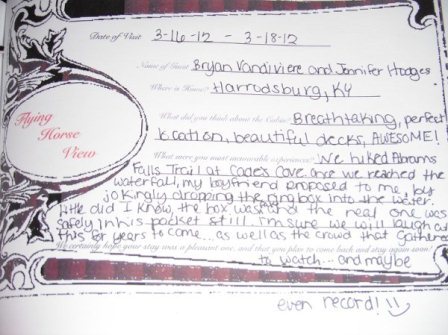 Date of Visit 3-16-12 - 3-18-12
Name of Guest Bryan Vandiviere and Jennifer Hodges
Where is Home? Harrodsburg, KY
Flying
Horse
View
What did you think about the Cabin? Breathtaking, perfect
location, beautiful decks, AWESOME!
What were your most memorable experiences? We hiked Abrams
Falls Trail at Cades Cove. Once we reached the
waterfall, my boyfriend proposed to me, by
jokingly dropping the ring box into the water.
Little did I know, the box wasn't the real one was
safely in his pocket still. I'm sure we will laugh at
this for years to come... as well as the crowd that gathered
We certainly hope your stay was a pleasant one, and that you plan to come back and stay again soon!
to watch... and maybe
even record!!